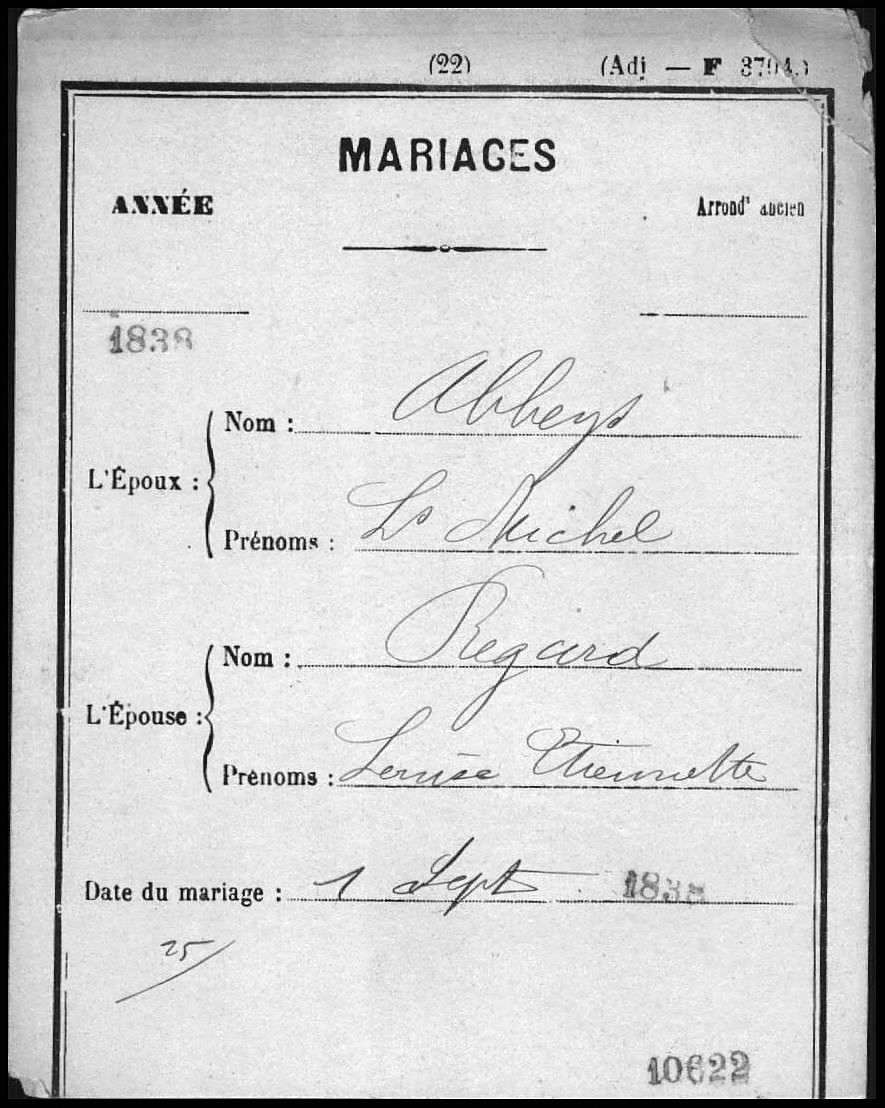 (22) (Adj — F 3704.)
MARIAGES
ANNÉE Arrond^t ancien
1838
Nom : Abbeys
L'Époux :
Prénoms : Ls Michel
Nom : Regard
L'Épouse :
Prénoms : Louise Etiennette
Date du mariage : 1 Sept 1838
25
10622